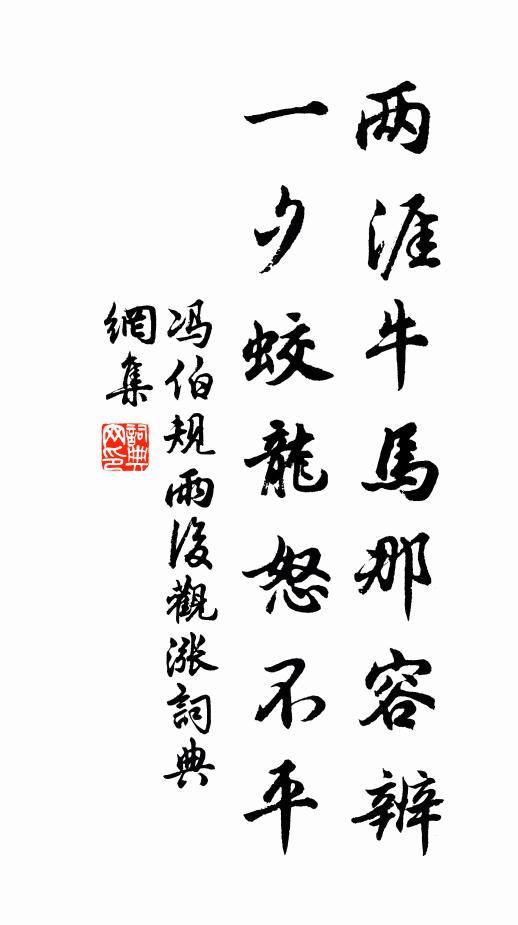 两涯牛馬那容辨
一夕蛟龍怒不平
冯伯規雨後觀漲詞典
網集
詞典網印